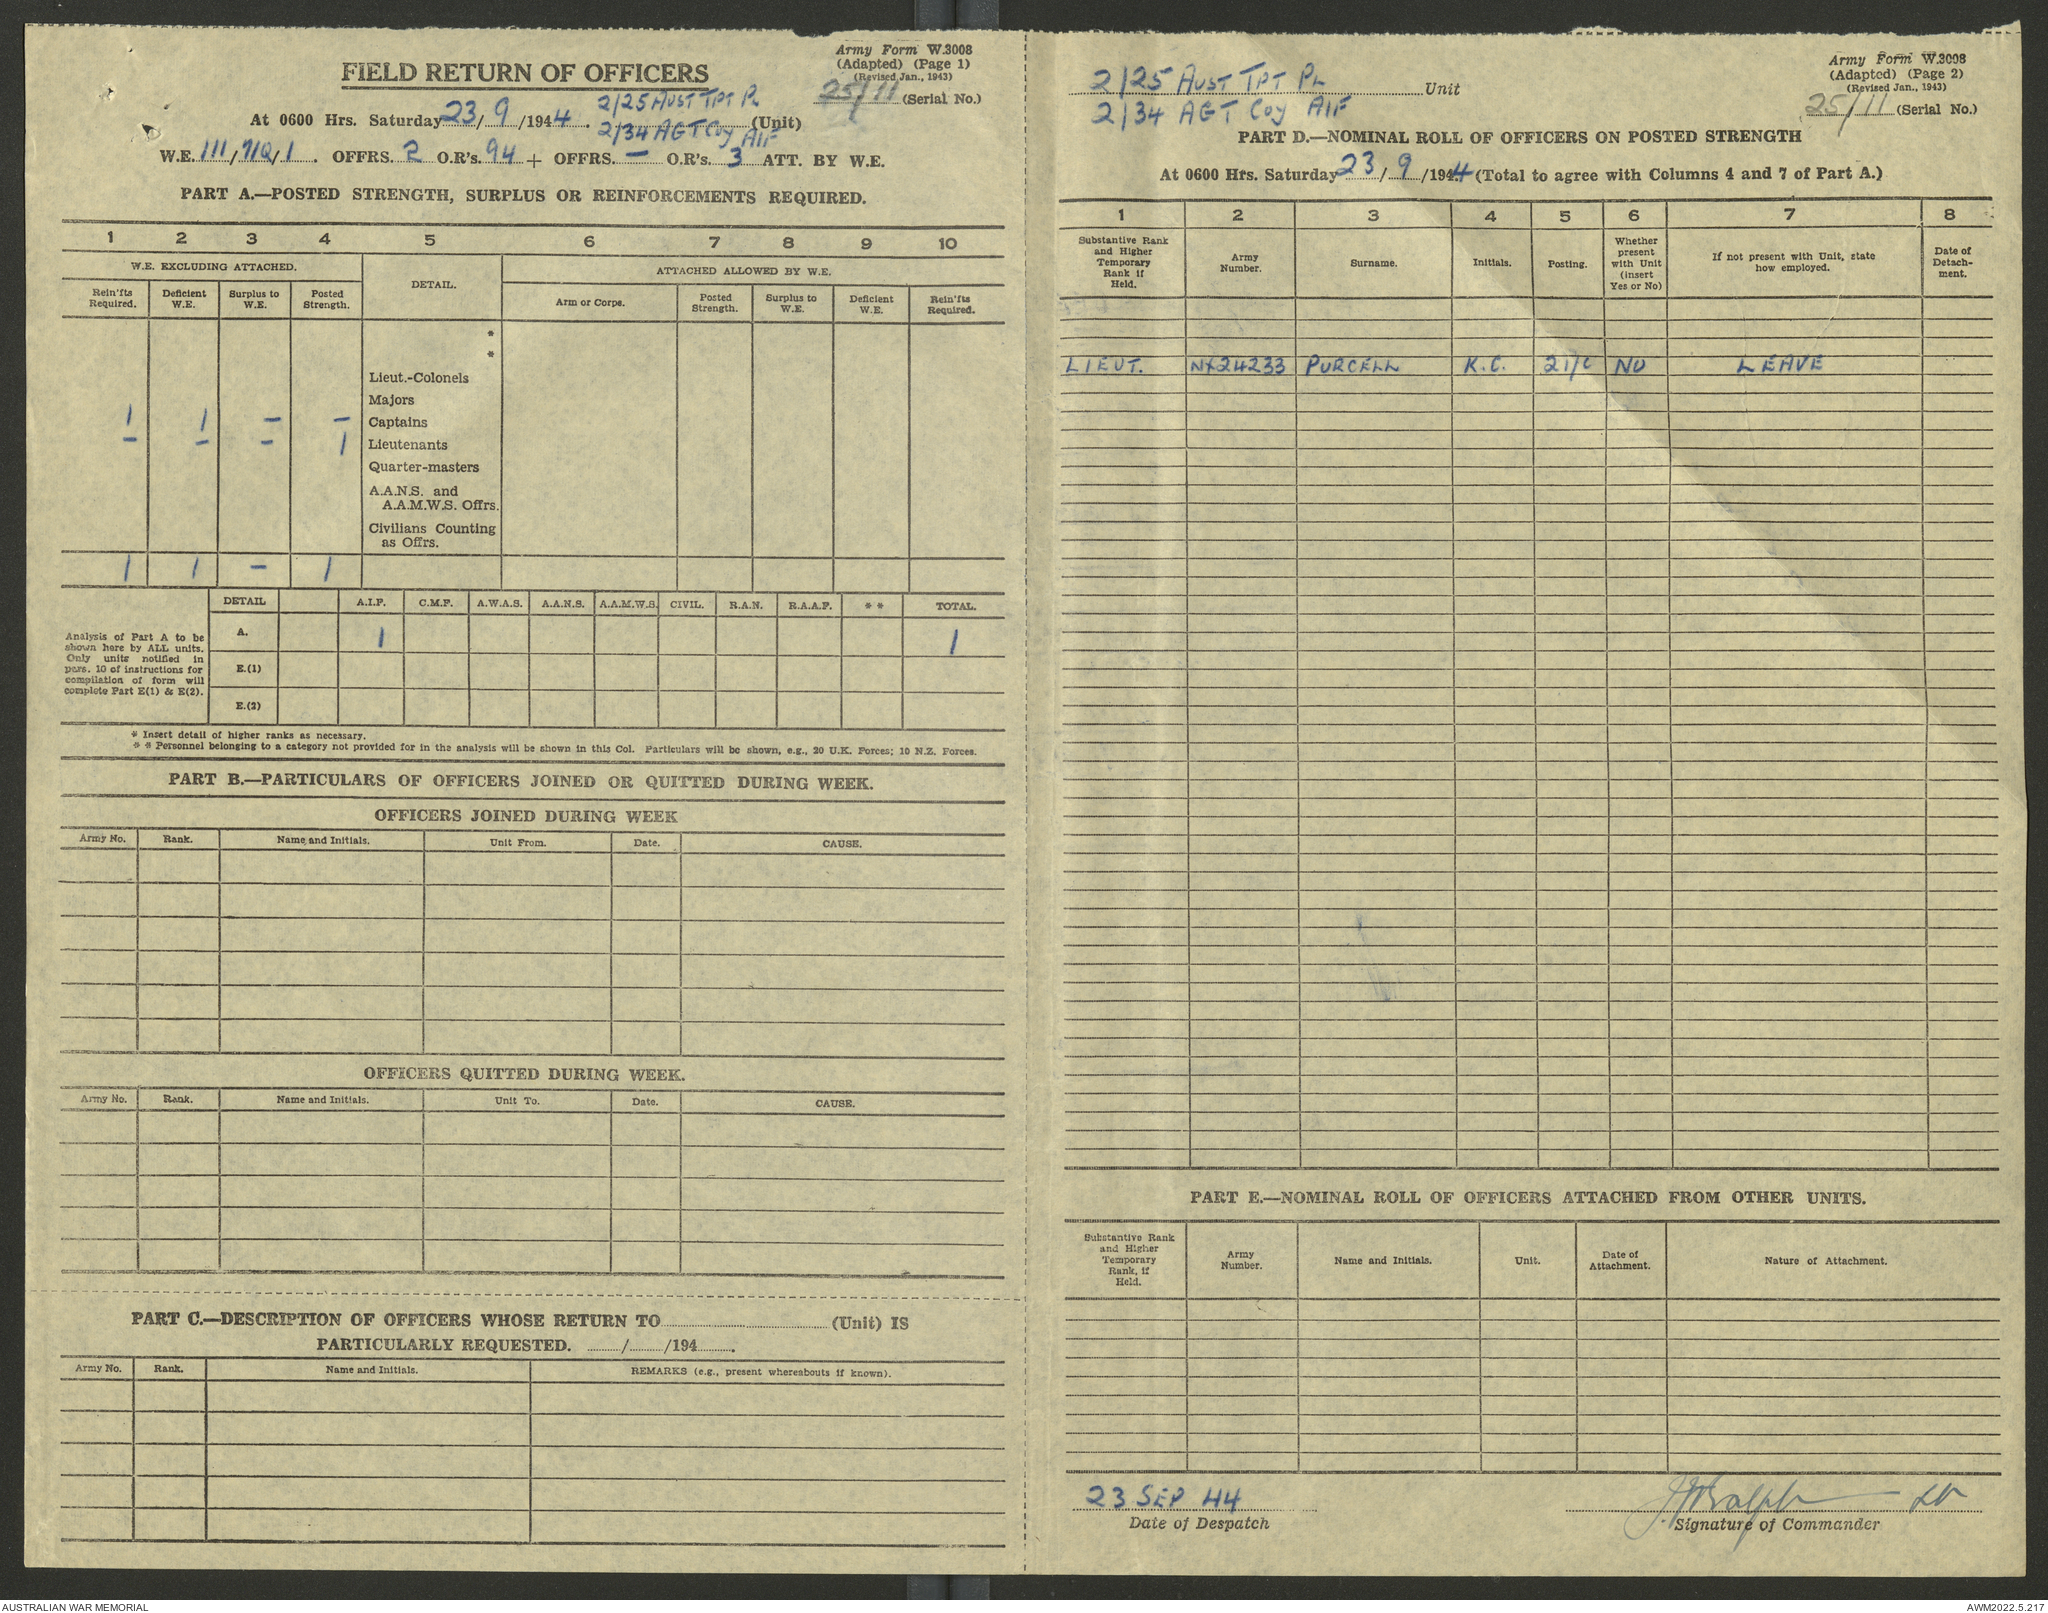 Army Form W.3008
(Adapted) (Page 1)
(Revised Jan., 1943)
FIELD RETURN OF OFFICERS
25/11 (Serial No.)
2/25 AUST TPT PL
At 0600 Hrs. Saturday 23/9/1944. 2/34 AGT Coy AIF (Unit)
W.E. 111/71Q/1. OFFRS. 2 O.R's. 94 + OFFRS. — O.R's. 3 ATT. BY W.E.
PART A.—POSTED STRENGTH, SURPLUS OR REINFORCEMENTS REQUIRED.
1 2 3 4 5 6 7 8 9 10
W.E. EXCLUDING ATTACHED. DETAIL. ATTACHED ALLOWED BY W.E.
Rein'fts Required. Deficient W.E. Surplus to W.E. Posted Strength. Arm or Corps. Posted Strength. Surplus to W.E. Deficient W.E. Rein'fts Required.
*
*
Lieut.-Colonels
Majors
1 1 — — Captains
— — — 1 Lieutenants
Quarter-masters
A.A.N.S. and
A.A.M.W.S. Offrs.
Civilians Counting
as Offrs.
1 1 — 1
DETAIL A.I.F. C.M.F. A.W.A.S. A.A.N.S. A.A.M.W.S. CIVIL. R.A.N. R.A.A.F. * * TOTAL.
Analysis of Part A to be
shown here by ALL units.
Only units notified in
para. 10 of instructions for
compilation of form will
complete Part E(1) & E(2).
A. 1 1
E.(1)
E.(2)
* Insert detail of higher ranks as necessary.
* * Personnel belonging to a category not provided for in the analysis will be shown in this Col. Particulars will be shown, e.g., 20 U.K. Forces; 10 N.Z. Forces.
PART B.—PARTICULARS OF OFFICERS JOINED OR QUITTED DURING WEEK.
OFFICERS JOINED DURING WEEK
Army No. Rank. Name and Initials. Unit From. Date. CAUSE.
OFFICERS QUITTED DURING WEEK.
Army No. Rank. Name and Initials. Unit To. Date. CAUSE.
PART C.—DESCRIPTION OF OFFICERS WHOSE RETURN TO (Unit) IS
PARTICULARLY REQUESTED. / /194 .
Army No. Rank. Name and Initials. REMARKS (e.g., present whereabouts if known).
Army Form W.3008
(Adapted) (Page 2)
(Revised Jan., 1943)
25/11 (Serial No.)
2/25 AUST TPT PL Unit
2/34 AGT Coy AIF
PART D.—NOMINAL ROLL OF OFFICERS ON POSTED STRENGTH
At 0600 Hrs. Saturday 23/9/1944 (Total to agree with Columns 4 and 7 of Part A.)
1 2 3 4 5 6 7 8
Substantive Rank and Higher Temporary Rank if Held. Army Number. Surname. Initials. Posting. Whether present with Unit (insert Yes or No) If not present with Unit, state how employed. Date of Detach-ment.
LIEUT. NX24233 PURCELL K.C. 2I/C NO LEAVE
PART E.—NOMINAL ROLL OF OFFICERS ATTACHED FROM OTHER UNITS.
Substantive Rank and Higher Temporary Rank, if Held. Army Number. Name and Initials. Unit. Date of Attachment. Nature of Attachment.
23 SEP 44
Date of Despatch
Signature of Commander
AUSTRALIAN WAR MEMORIAL
AWM2022.5.217